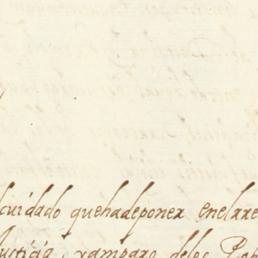 cuidado quehadeponer enelrre
Justicia, yamparo delos Pob